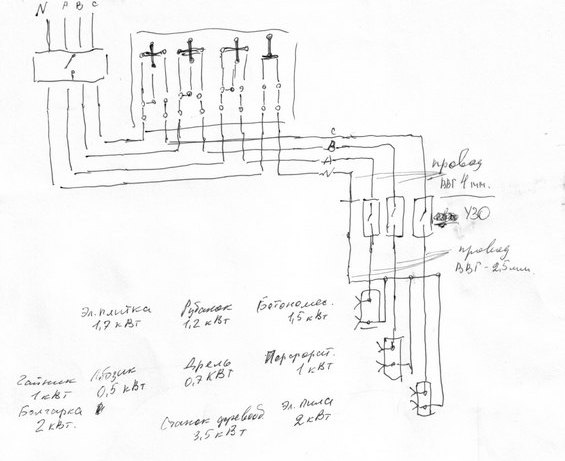 N A B C
C
B
A
N
провод
ВВГ 4 мм.
УЗО
провод
ВВГ - 2,5 мм.
Эл. плитка
1,7 кВт
Рубанок
1,2 кВт
Бетономес.
1,5 кВт
Чайник
1 кВт
Лобзик
0,5 кВт
Дрель
0,7 кВт
Перфорат.
1 кВт
Болгарка
2 кВт.
Станок
3,5 кВт
Эл. пила
2 кВт